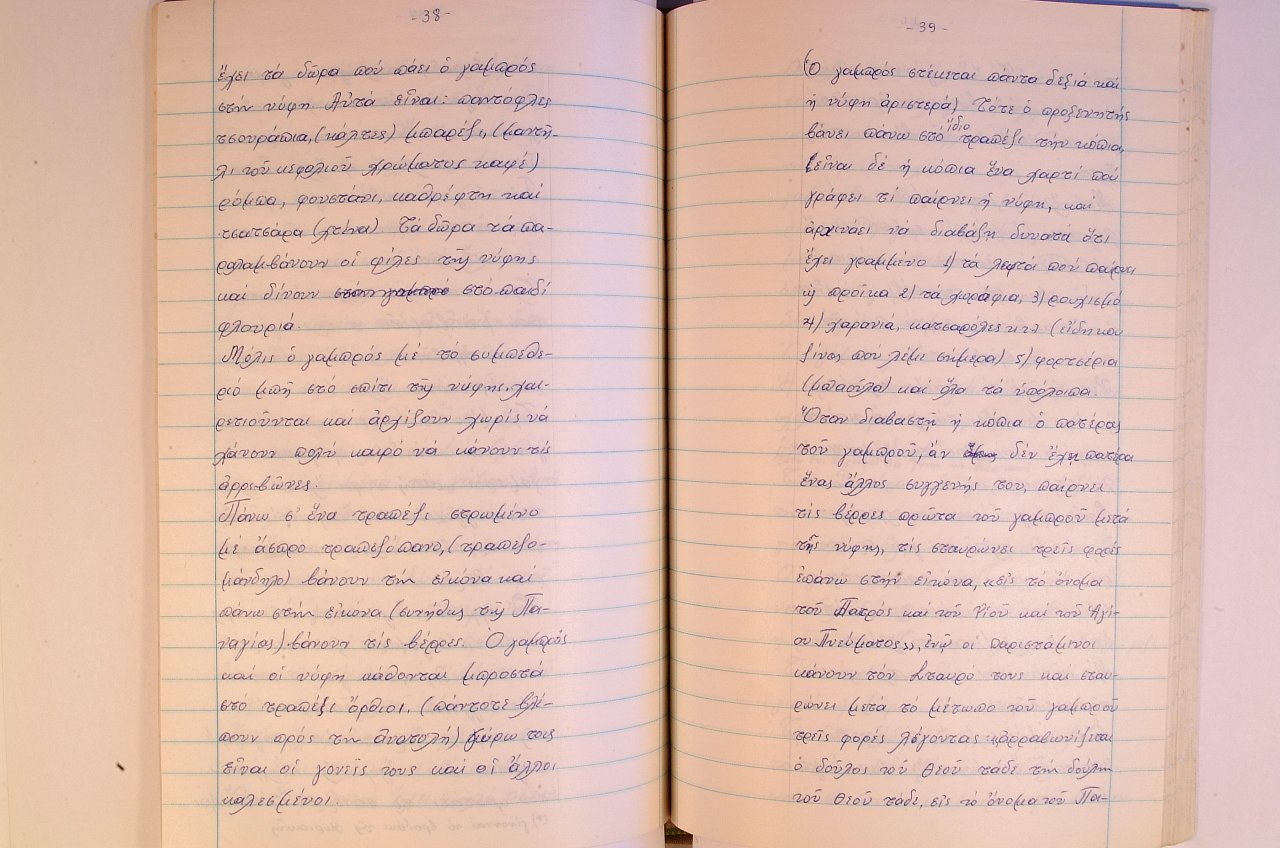 -38-
ἔχει τά δῶρα πού πάει ὁ γαμπρός
στήν νύφη. Αὐτά εἶναι: παντόφλες
τσουράπια, (κάλτες) μπαρέζι, (μαντή-
λι τοῦ κεφαλιοῦ χρώματος καφέ)
ρόμπα, φουστάνι, καθρέφτη καί
τσατσάρα (χτένα). Τά δῶρα τά πα-
ραλαμβάνουν οἱ φίλες τῆς νύφης
καί δίνουν στόν γαμπρο στό παιδί
φλουριά.
Μόλις ὁ γαμπρός μέ τό συμπεθε-
ριό μπῆ στό σπίτι τῆς νύφης, χαι-
ρετιοῦνται καί ἀρχίζουν χωρίς νά
χάνουν πολύ καιρό νά κάνουν τίς
ἀρρεβῶνες.
Πάνω σ' ἕνα τραπέζι στρωμένο
μέ ἄσπρο τραπεζόπανο, (τραπεζο-
μάνδηλο) βάνουν τήν εἰκόνα καί
πάνω στήν εἰκόνα (συνήθως τῆς Πα-
ναγίας) βάνουν τίς βέρρες. Ὁ γαμπρός
καί οἱ νύφη κάθονται μπροστά
στό τραπέζι ὄρθιοι, (πάντοτε βλέ-
πουν πρός τήν ἀνατολή) Γύρω τους
εἶναι οἱ γονεῖς τους καί οἱ ἄλλοι
καλεσμένοι.
-39-
(Ὁ γαμπρός στέκεται πάντα δεξιά καί
ἡ νύφη ἀριστερά) Τότε ὁ προξενητής
βάνει πάνω στό ἴδιο τραπέζι τήν κόπια,
(εἶναι δέ ἡ κόπια ἕνα χαρτί πού
γράφει τί παίρνει ἡ νύφη, καί
ἀρχινάει νά διαβάζη δυνατά ὅτι
ἔχει γραμμένο 1) τά λεφτά πού παίρνει
ὡς προῖκα 2) τά χωράφια, 3) ρουχισμό
4) χαρανιά, κατσαρόλες κτλ (εἴδη κου
ζίνας πού λέμε σήμερα) 5) φορτσέρια
(μπαοῦλα) καί ὅλα τά ὑπόλοιπα.
Ὅταν διαβαστῆ ἡ κόπια ὁ πατέρας
τοῦ γαμπροῦ, ἄν δέν ἔχῃ πατέρα
ἕνας ἄλλος συγγενής του, παίρνει
τίς βέρρες πρῶτα τοῦ γαμπροῦ μετά
τῆς νύφης, τίς σταυρώνει τρεῖς φορές
ἐπάνω στήν εἰκόνα, «εἰς τό ὄνομα
τοῦ Πατρός καί τοῦ Υἱοῦ καί τοῦ Ἁγί-
ου Πνεύματος», ἐνῷ οἱ παριστάμενοι
κάνουν τόν Σταυρό τους καί σταυ-
ρώνει μετά τό μέτωπο τοῦ γαμπροῦ
τρεῖς φορές λέγοντας «ἀρραβωνίζεται
ὁ δοῦλος τοῦ Θεοῦ τάδε τήν δούλην
τοῦ Θεοῦ τάδε, εἰς τό ὄνομα τοῦ Πα-